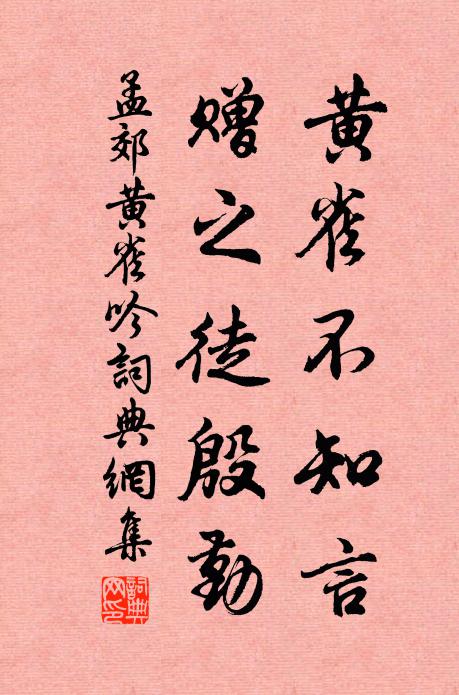 黄雀不知言
赠之徒殷勤
孟郊黄雀吟詞典網集
詞典網印